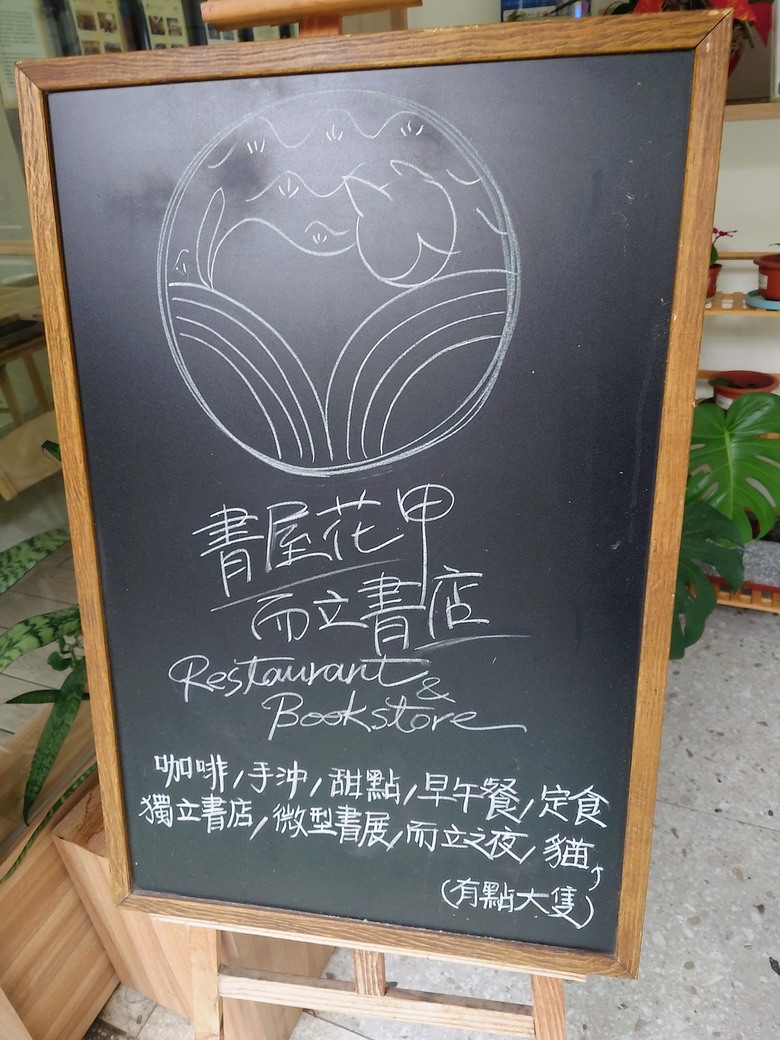 書屋花甲
而立書店
Restaurant &
Bookstore
咖啡/手沖/甜點/早午餐/定食
獨立書店/微型書展/而立之夜/貓
(有點大隻)